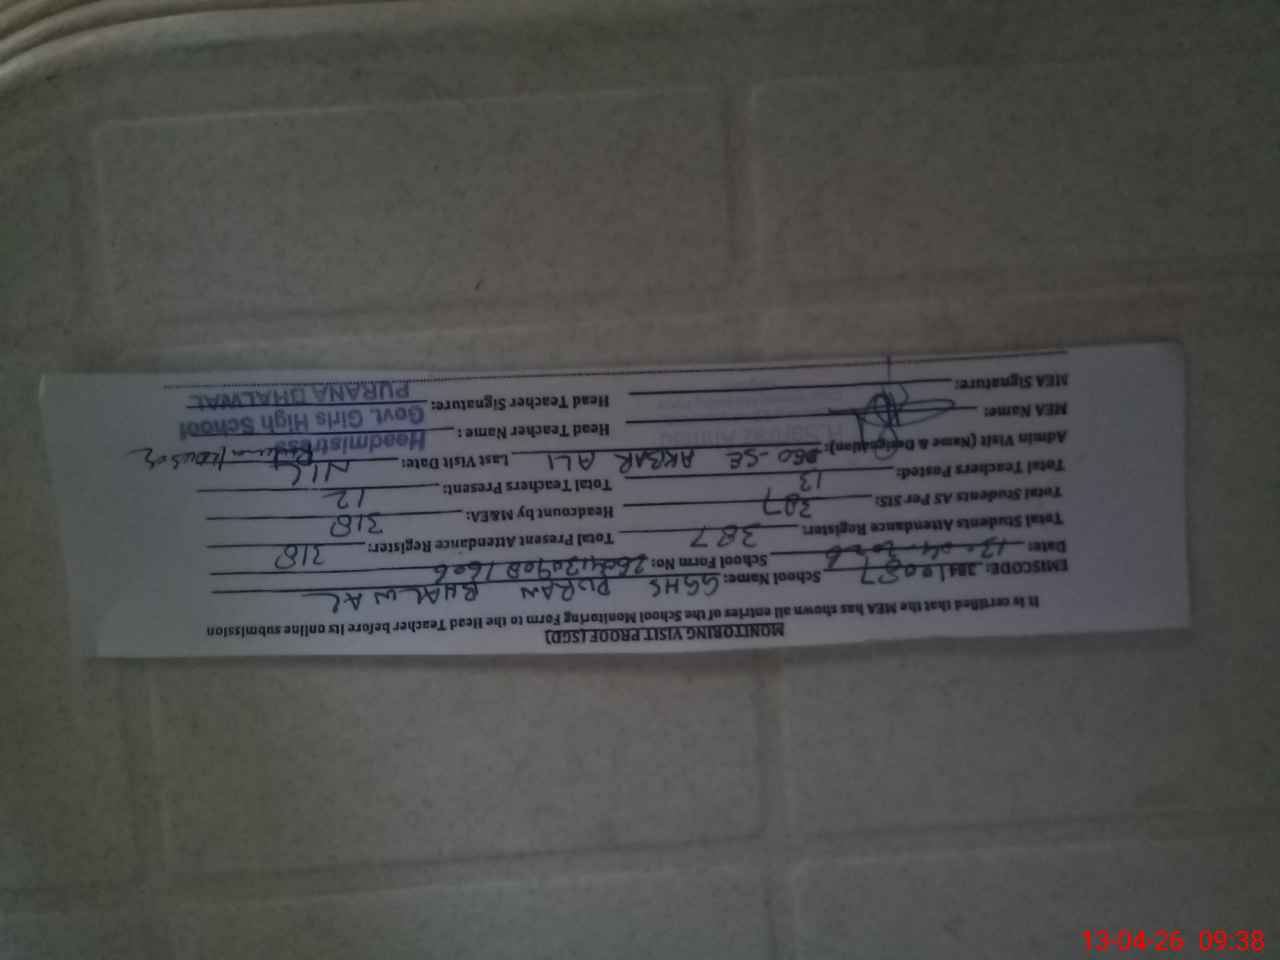 MONITORING VISIT PROOF (SGD)
It is certified that the MEA has shown all entries of the School Monitoring Form to the Head Teacher before its online submission
EMISCODE: 38410087 School Name: GGHS PURAN BHALWAL
Date: 13-04-2026 School Form No:
Total Students Attendance Register: 387 Total Present Attendance Register: 318
Total Students AS Per SIS: 387 Headcount by M&EA: 318
Total Teachers Posted: 13 Total Teachers Present: 12
Admin Visit (Name & Designation): DEO-SE AKBAR ALI Last Visit Date: NIL
MEA Name: Head Teacher Name:
MEA Signature: Head Teacher Signature:
Headmistress
Govt. Girls High School
PURANA BHALWAL
13-04-26 09:38